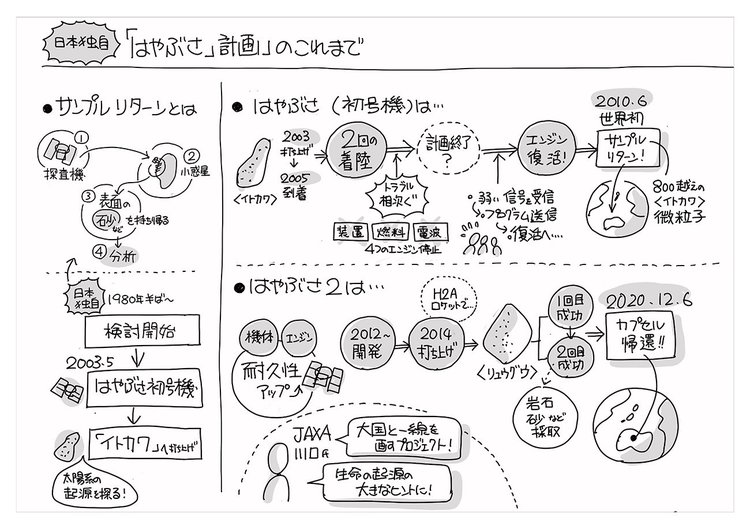 日本独自
「はやぶさ」計画」のこれまで
●サンプルリターンとは
①
探査機
②
小惑星
③
表面の
砂など
を持ち帰る
④分析
日本
独自
1980年半ば〜
検討開始
2003.5
はやぶさ初号機
「イトカワ」へ打ち上げ
太陽系の
起源を探る!
●はやぶさ(初号機)は…
<イトカワ>
2003
打ち上げ
2005
到着
2回の
着陸
トラブル
相次ぐ
装置
燃料
電波
4つのエンジン停止
計画終了
?
・弱い信号を受信
・プログラム送信
・復活へ…
エンジン
復活!
2010.6
世界初
サンプル
リターン!
800越えの
<イトカワ>
微粒子
●はやぶさ2は…
機体
エンジン
耐久性
アップ
2012〜
開発
H2A
ロケットで…
2014
打ち上げ
<リュウグウ>
1回目
成功
2回目
成功
岩石
砂など
採取
2020.12.6
カプセル
帰還!!
JAXA
川口氏
大国と一線を
画すプロジェクト!
生命の起源の
大きなヒントに!